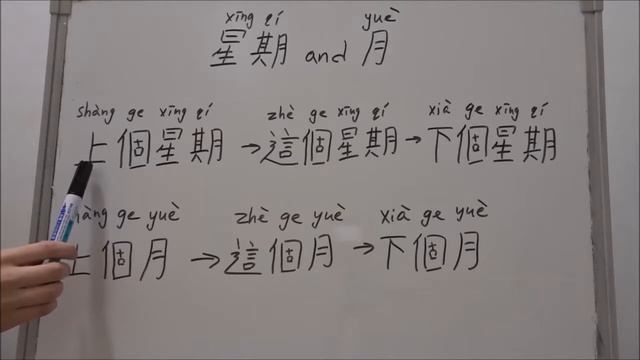 xīng qí yuè
星期 and 月
shàng ge xīng qí zhè ge xīng qí xià ge xīng qí
上個星期 → 這個星期 → 下個星期
hàng ge yuè zhè ge yuè xià ge yuè
上個月 → 這個月 → 下個月